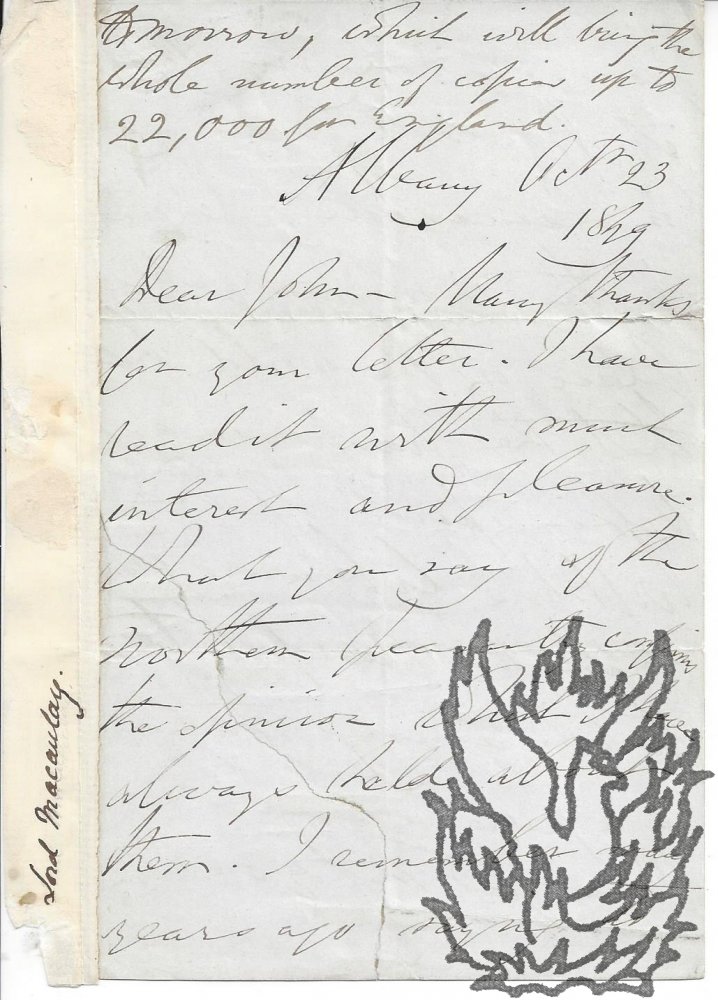 tomorrow, which will bring the
whole number of copies up to
22,000 for England.
Albany Octr 23
1849
Dear John - Many thanks
for your letter. I have
read it with much
interest and pleasure.
What you say of the
northern peasantry confirms
the opinion which I have
always held about
them. I remember
years ago saying
Lord Macaulay.